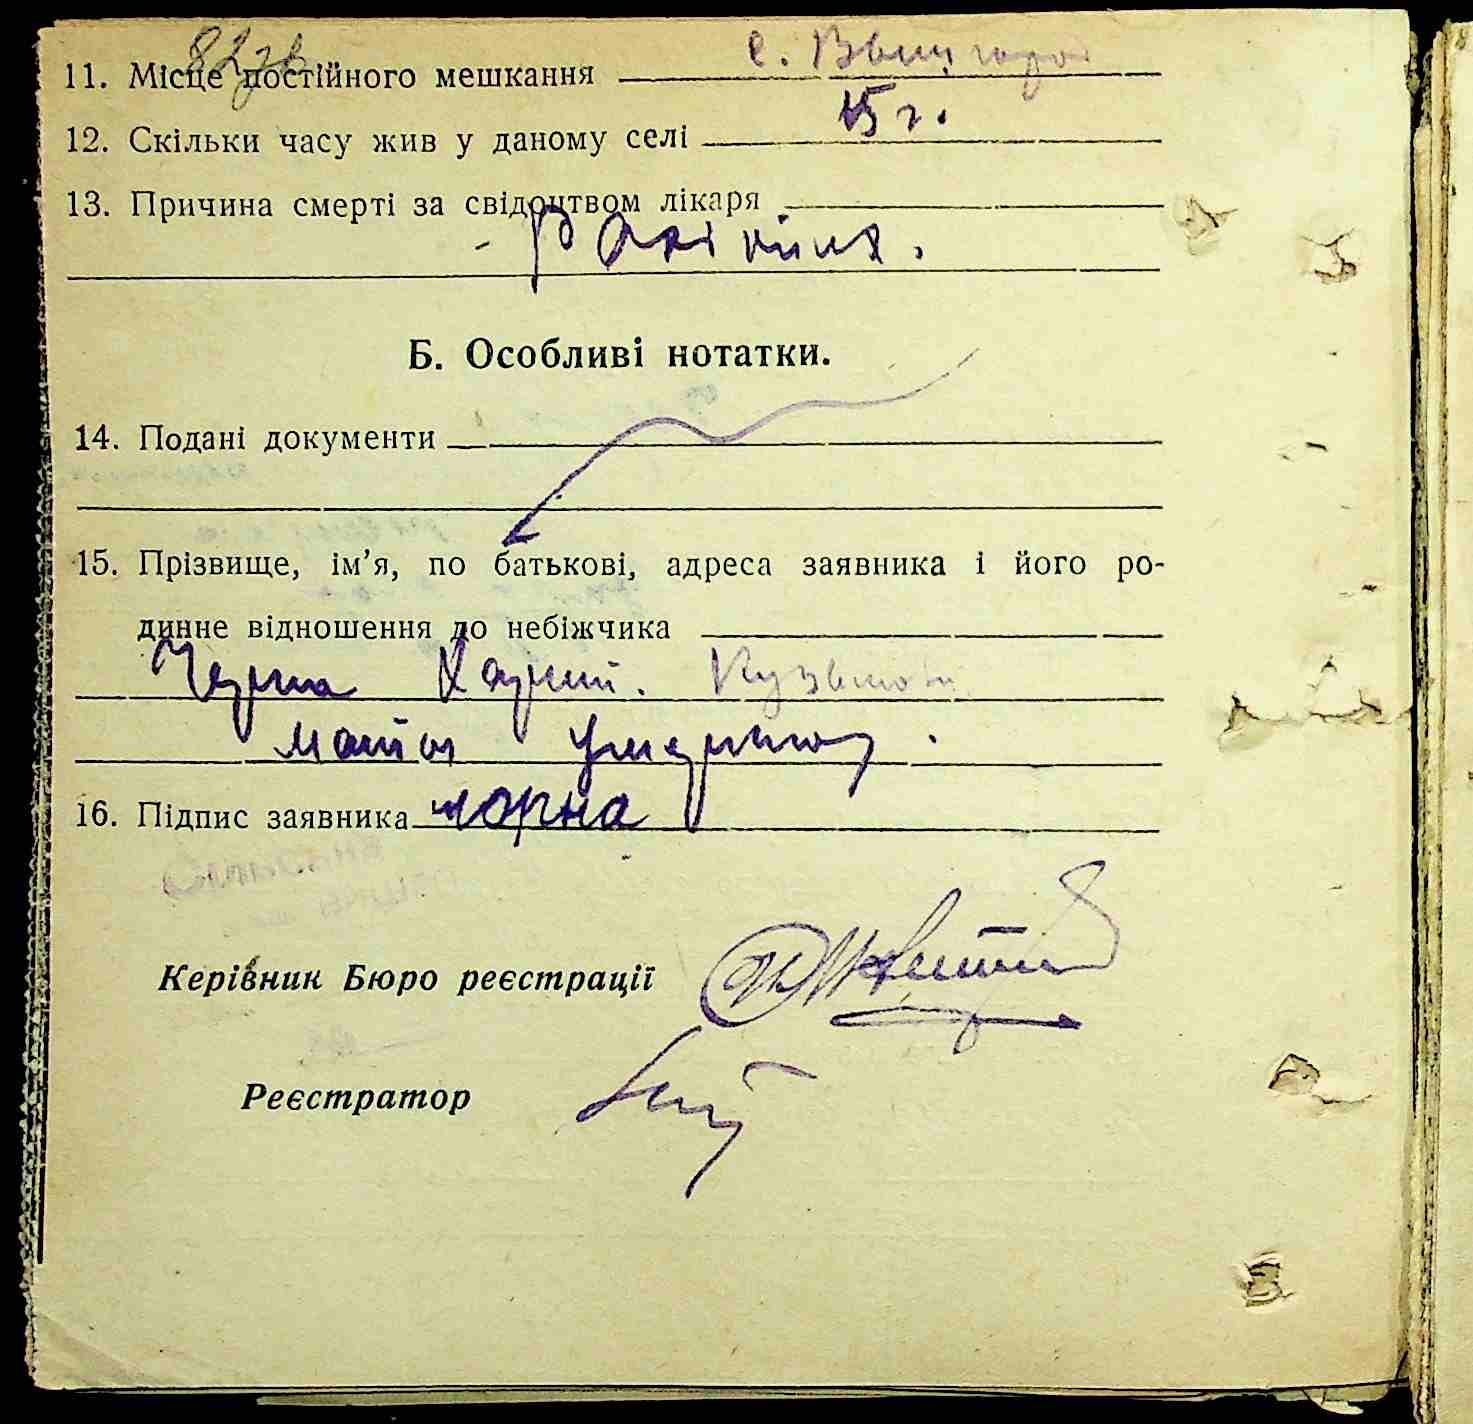 82зв
11. Місце постійного мешкання с. Вышгород
12. Скільки часу жив у даному селі 15 г.
13. Причина смерті за свідоцтвом лікаря
Б. Особливі нотатки.
14. Подані документи
15. Прізвище, ім’я, по батькові, адреса заявника і його ро-
динне відношення до небіжчика
Черна
мати умершого.
16. Підпис заявника чорна
Керівник Бюро реєстрації
Реєстратор